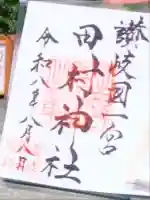 讃岐国一宮
田村神社
令和八年八月八日